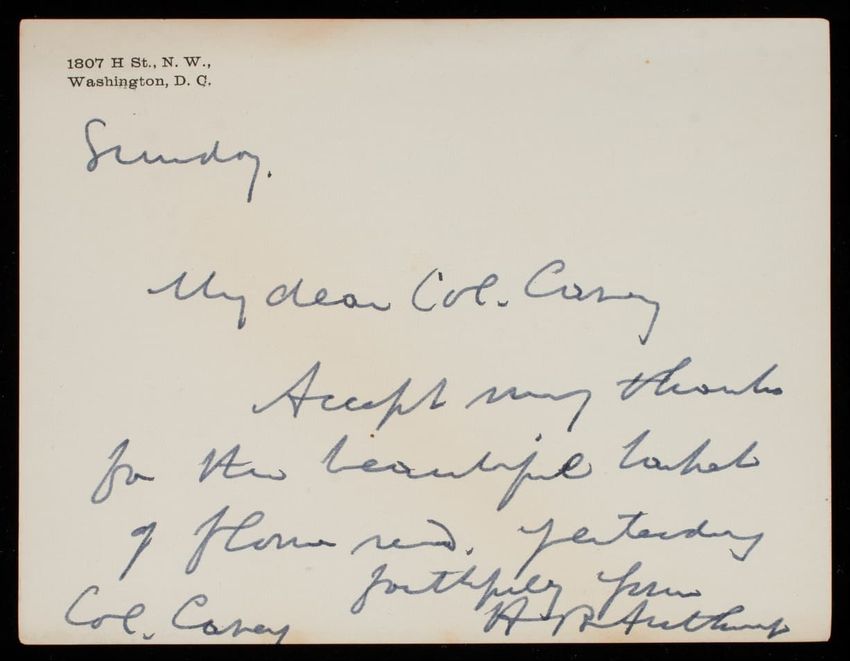 1807 H St., N. W.,
Washington, D. C.
Sunday.
My dear Col. Casey
Accept my thanks
for the beautiful basket
of flowers recd. yesterday
faithfully yours
Col. Casey